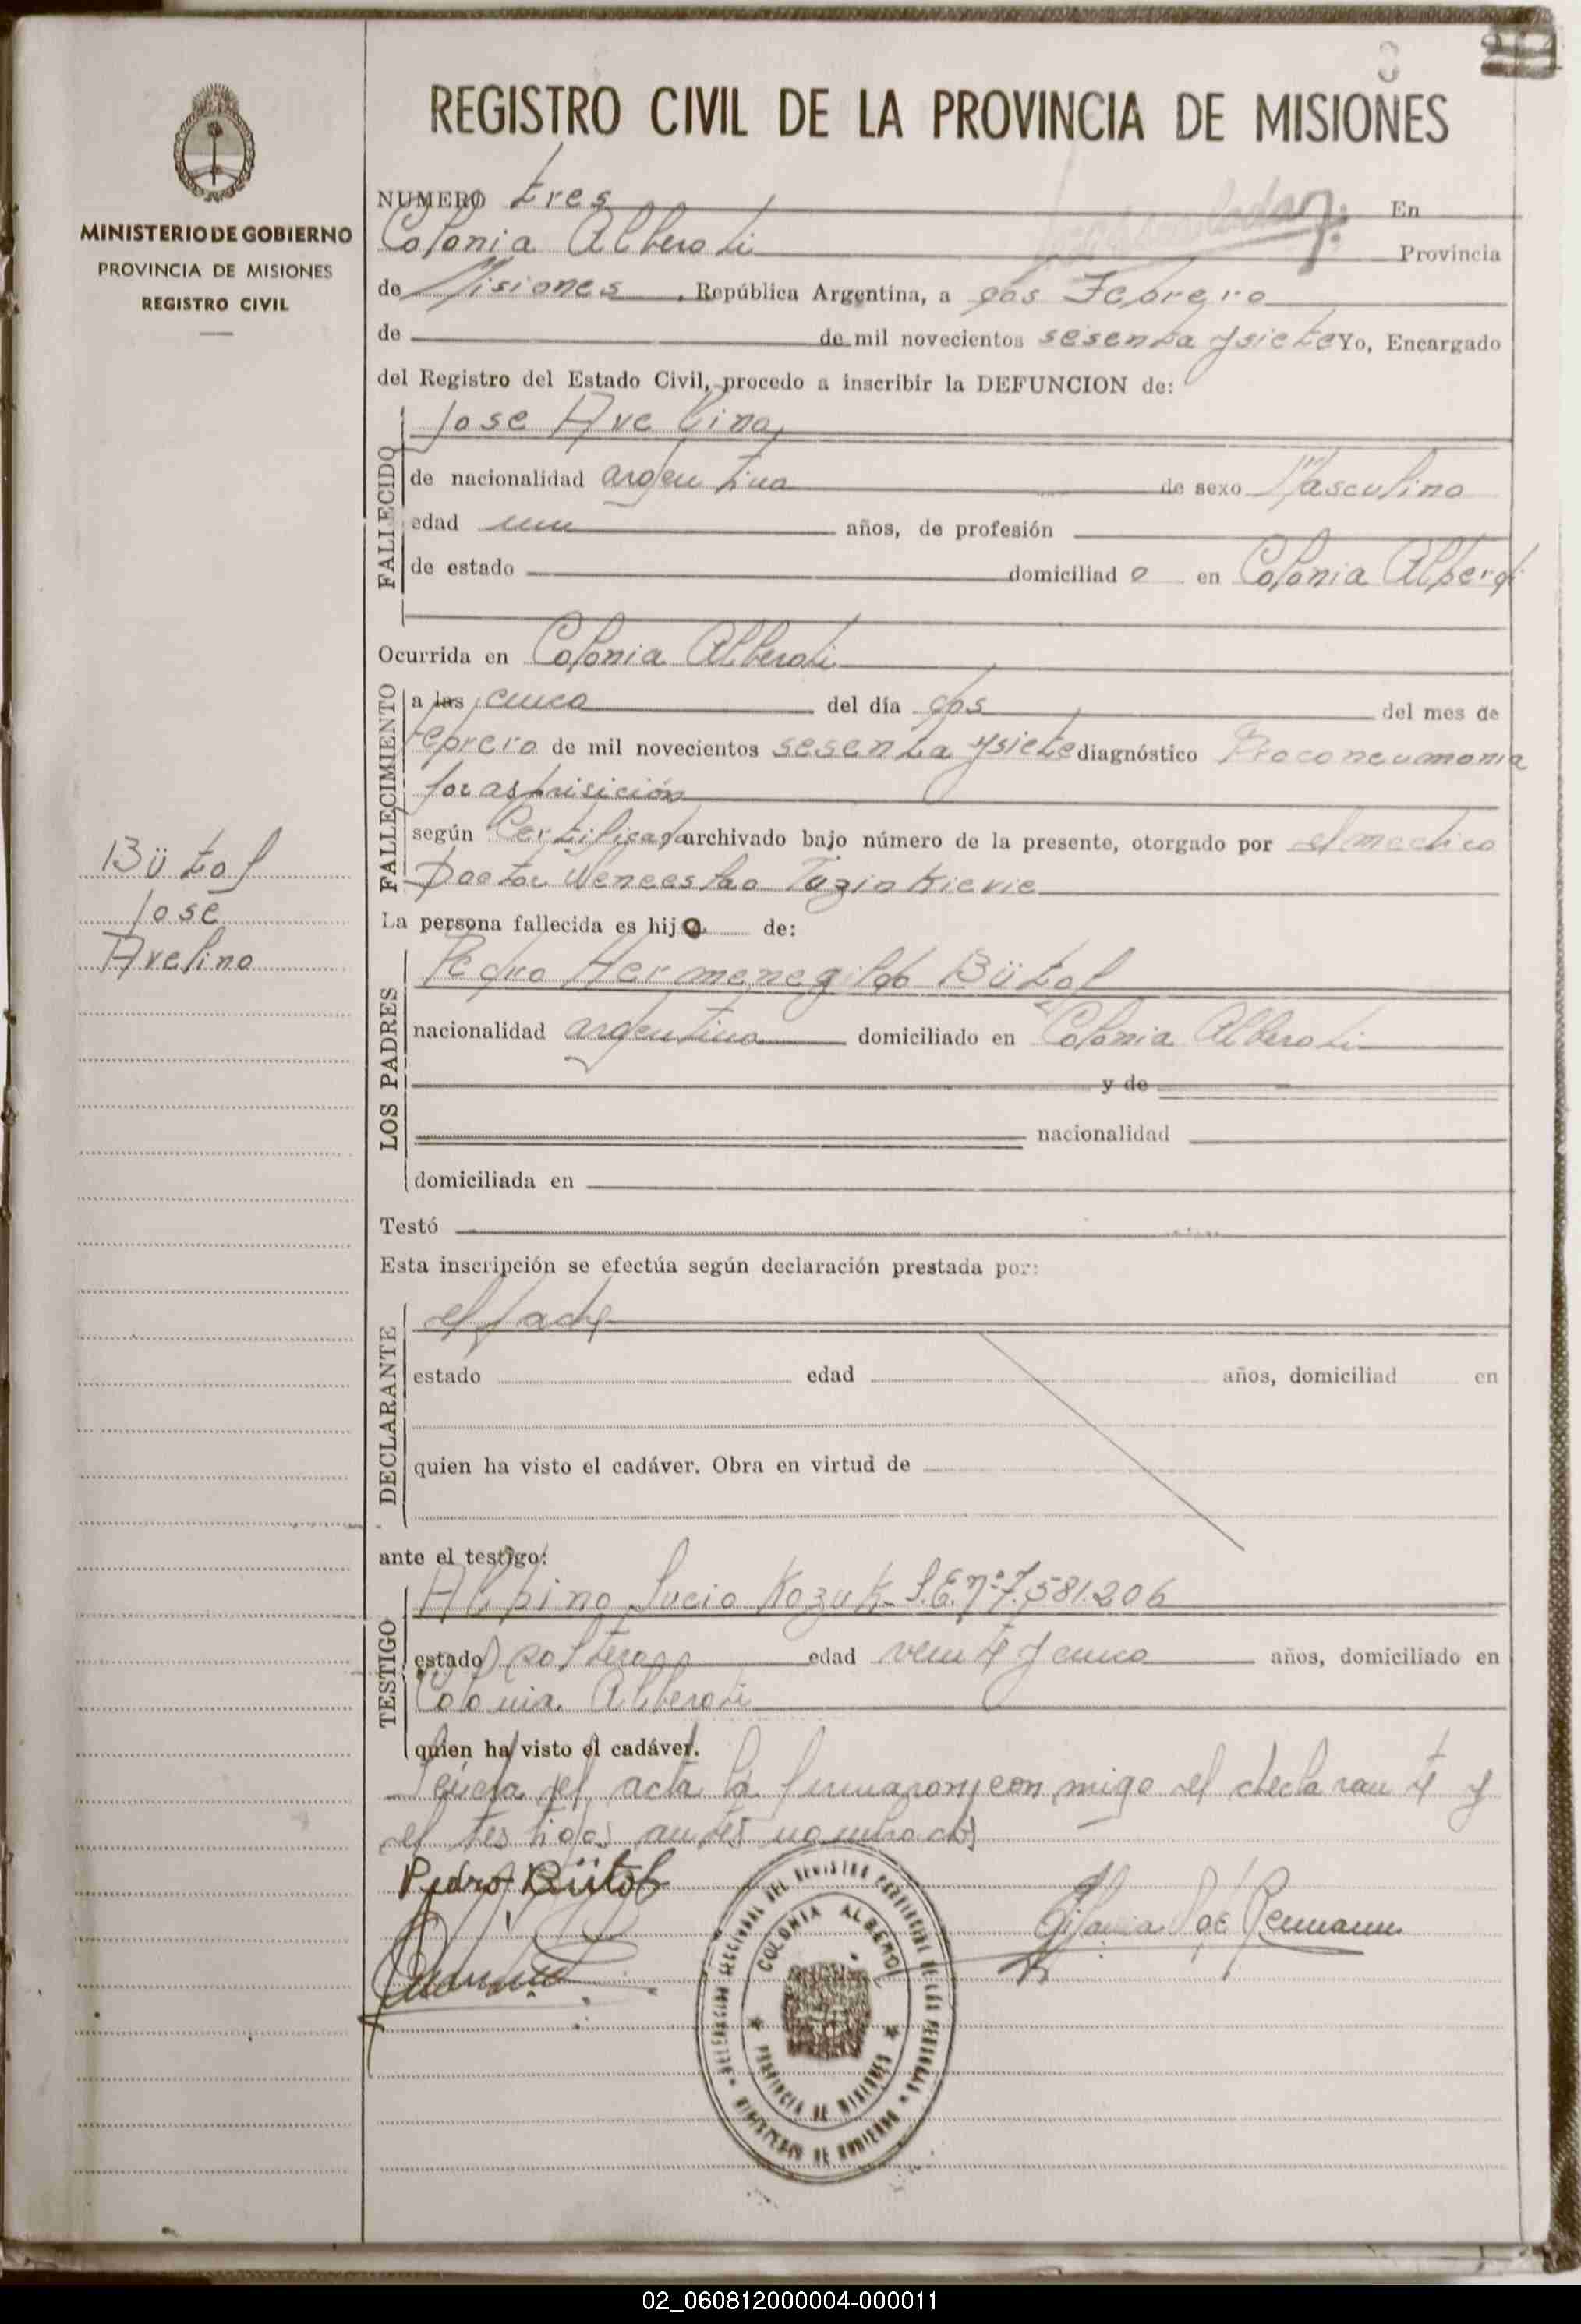 REGISTRO CIVIL DE LA PROVINCIA DE MISIONES
MINISTERIO DE GOBIERNO
PROVINCIA DE MISIONES
REGISTRO CIVIL
Bütof
Jose
Avelino
NUMERO tres En
Colonia Alberdi Provincia
de Misiones , República Argentina, a dos Febrero
de de mil novecientos sesenta y siete Yo, Encargado
del Registro del Estado Civil, procedo a inscribir la DEFUNCION de:
FALLECIDO
Jose Avelino
de nacionalidad argentina de sexo Masculino
edad un años, de profesión
de estado domiciliad o en Colonia Alberdi
Ocurrida en Colonia Alberdi
FALLECIMIENTO
a las cinco del día dos del mes de
febrero de mil novecientos sesenta y siete diagnóstico
por
según Certificado archivado bajo número de la presente, otorgado por el medico
Doctor Wenceslao
La persona fallecida es hijo de:
LOS PADRES
Pedro Hermenegildo Bütof
nacionalidad argentina domiciliado en Colonia Alberdi
y de
nacionalidad
domiciliada en
Testó
Esta inscripción se efectúa según declaración prestada por:
DECLARANTE
el padre
estado edad años, domiciliad en
quien ha visto el cadáver. Obra en virtud de
ante el testigo:
TESTIGO
Albino Lucio Kozuk L.E. nº 7.581.206
estado soltero edad veinte y cinco años, domiciliado en
Colonia Alberdi
quien ha visto el cadáver.
Leida el acta la firmaron con migo el declarante y
el testigos antes nombrados
Pedro Bütof
COLONIA ALBERDI
PROVINCIA DE MISIONES
MINISTERIO DE GOBIERNO
02_060812000004-000011